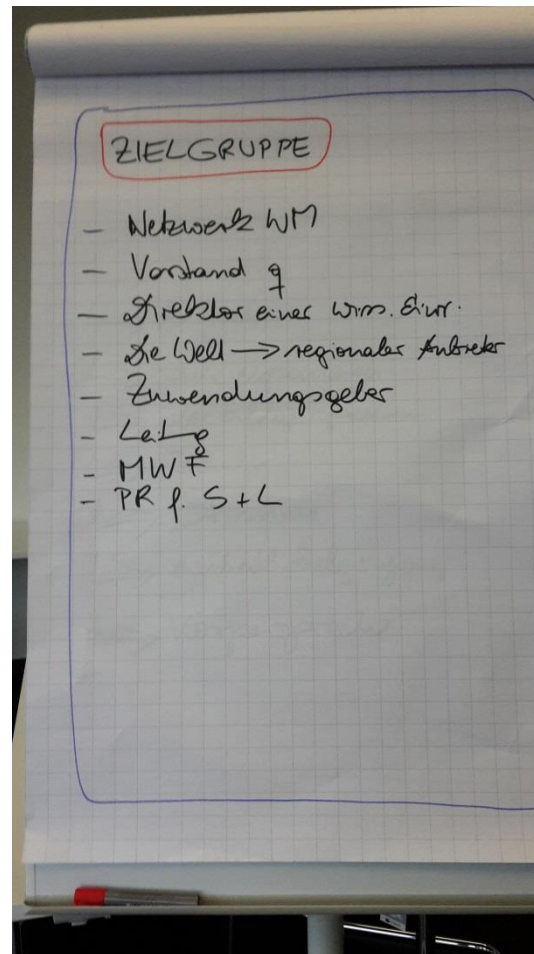 ZIELGRUPPE
- Netzwerk WM
- Vorstand
- Direktor einer wiss. Einr.
- Die Welt → regionaler Anbieter
- Zuwendungsgeber
- MWF
- PR f. S + L